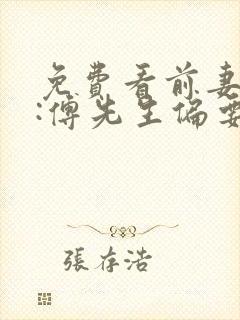 免費看前妻
:傅先生偏要
張存浩